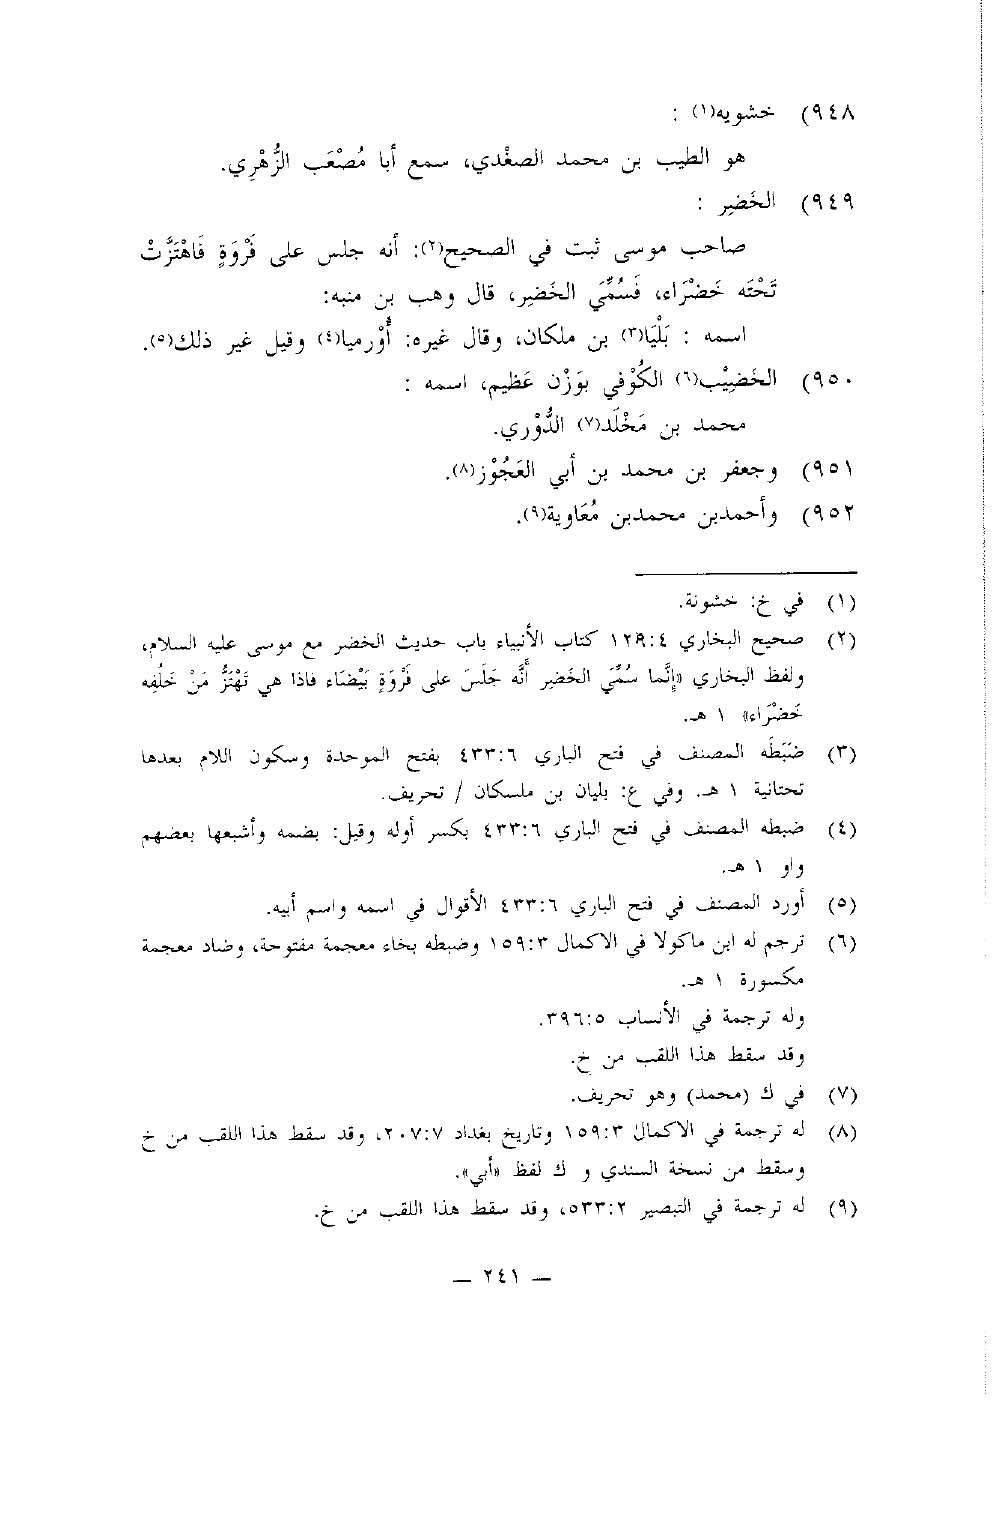 ٩٤٨) خشويه(١) :
هو الطيب بن محمد الصغْدي، سمع أبا مُصْعَب الزُّهْرِي.
٩٤٩) الخَضِر :
صاحب موسى ثبت في الصحيح(٢): أنه جلس على فَرْوَةٍ فَاهْتَزَّتْ
تَحْتَه خَضْرَاء، فَسُمِّيَ الخَضِر، قال وهب بن منبه:
اسمه : بَلْيَا(٣) بن ملكان، وقال غيره: أُوْرميا(٤) وقيل غير ذلك(٥).
٩٥٠) الخَضِيْب(٦) الكُوْفي بوَزْن عَظِيم، اسمه :
محمد بن مَخْلَد(٧) الدُّوْري.
٩٥١) وجعفر بن محمد بن أبي العَجُوْز(٨).
٩٥٢) وأحمدبن محمدبن مُعَاوية(٩).
(١) في خ: خشونة.
(٢) صحيح البخاري ١٢٩:٤ كتاب الأنبياء باب حديث الخضر مع موسى عليه السلام،
ولفظ البخاري «إنَّما سُمِّيَ الخَضِر أنَّه جَلَسَ على فَرْوَةٍ بَيْضَاء فاذا هي تَهْتَزُّ مَنْ خَلْفِه
خَضْرَاء» ١ هـ.
(٣) ضَبَطَه المصنف في فتح الباري ٤٣٣:٦ بفتح الموحدة وسكون اللام بعدها
تحتانية ١ هـ. وفي ع: بليان بن ملسكان / تحريف.
(٤) ضبطه المصنف في فتح الباري ٤٣٣:٦ بكسر أوله وقيل: بضمه وأشبعها بعضهم
واو ١ هـ.
(٥) أورد المصنف في فتح الباري ٤٣٣:٦ الأقوال في اسمه واسم أبيه.
(٦) ترجم له ابن ماكولا في الاكمال ١٥٩:٣ وضبطه بخاء معجمة مفتوحة، وضاد معجمة
مكسورة ١ هـ.
وله ترجمة في الأنساب ٣٩٦:٥.
وقد سقط هذا اللقب من خ.
(٧) في ك (محمد) وهو تحريف.
(٨) له ترجمة في الاكمال ١٥٩:٣ وتاريخ بغداد ٢٠٧:٧، وقد سقط هذا اللقب من خ
وسقط من نسخة السندي و ك لفظ «أبي».
(٩) له ترجمة في التبصير ٥٣٣:٢، وقد سقط هذا اللقب من خ.
— ٢٤١ —